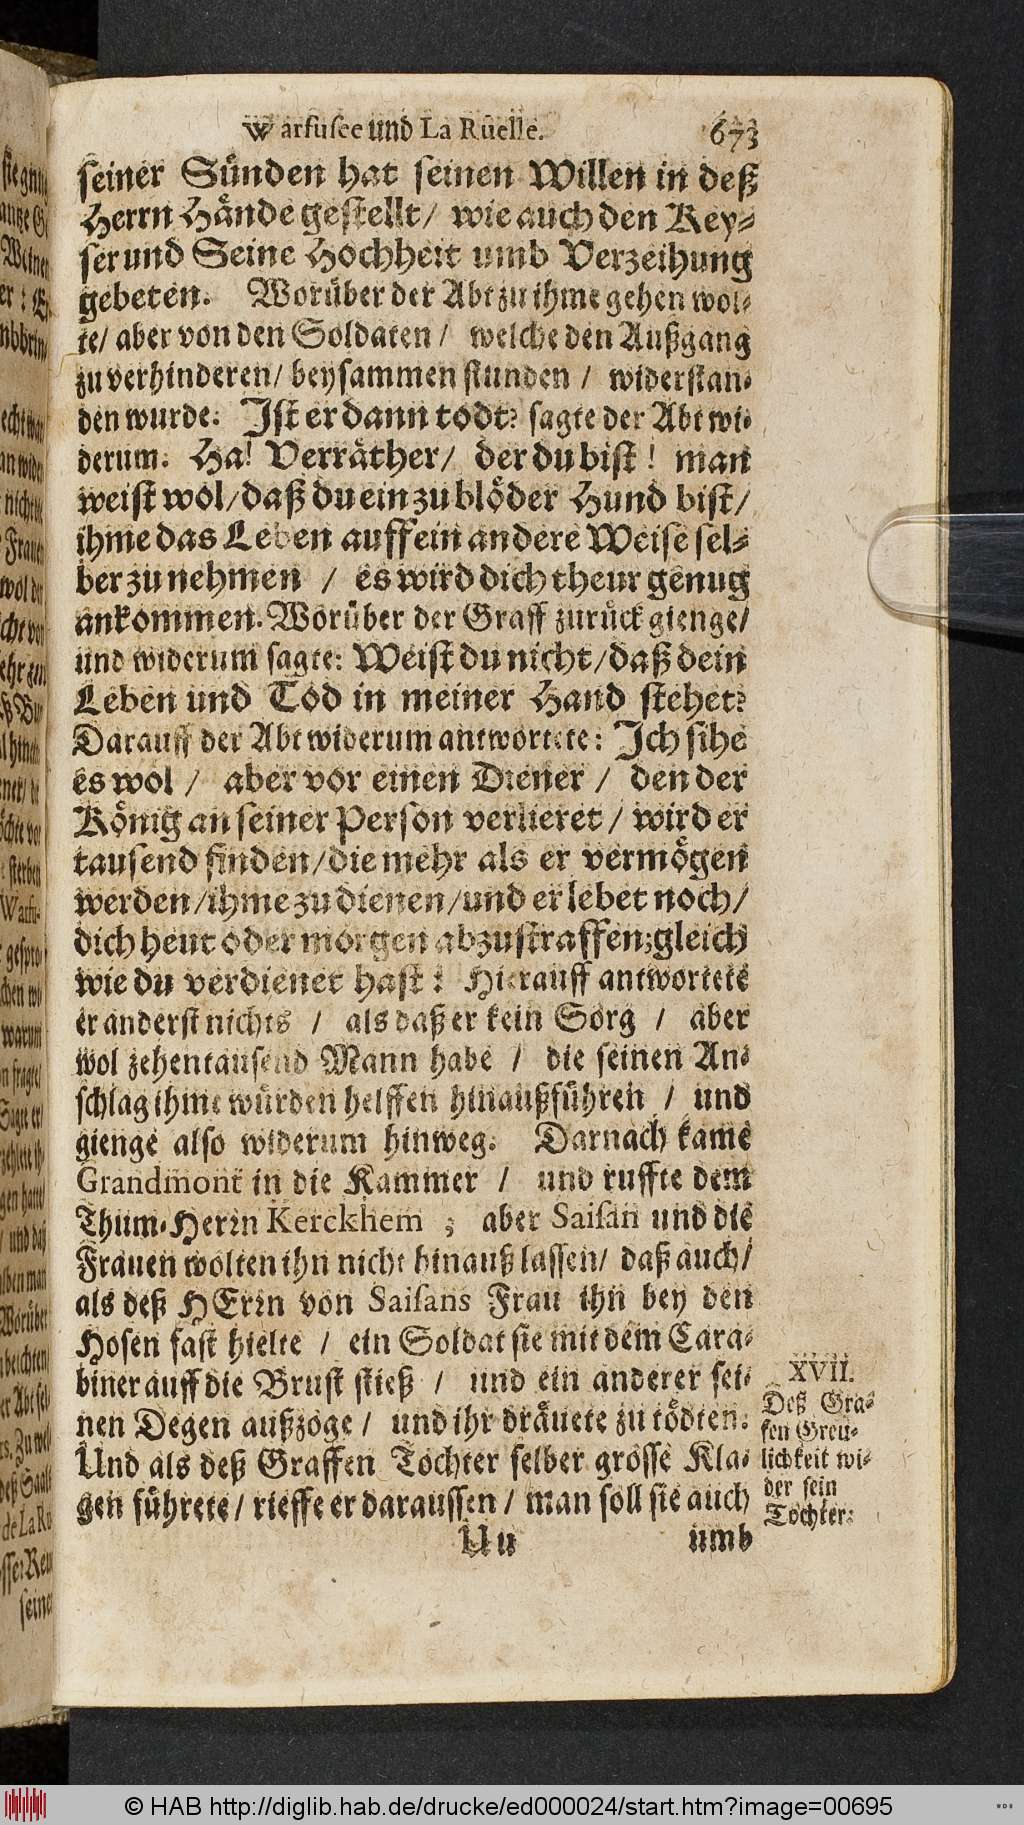 Warfusee und La Ruelle. 673
seiner Sünden hat seinen Willen in deß
Herrn Hände gestellt / wie auch den Key-
ser und Seine Hochheit umb Verzeihung
gebeten. Worüber der Abt zu ihme gehen wol-
te / aber von den Soldaten / welche den Außgang
zu verhinderen / beysammen stunden / widerstan-
den wurde. Ist er dann todt? sagte der Abt wi-
derum. Ha! Verräther / der du bist! man
weist wol / daß du ein zu blöder Hund bist /
ihme das Leben auff ein andere Weise sel-
ber zu nehmen / es wird dich theur genug
ankommen. Worüber der Graff zurück gienge /
und widerum sagte: Weist du nicht / daß dein
Leben und Tod in meiner Hand stehet?
Darauff der Abt widerum antwortete: Ich sihe
es wol / aber vor einen Diener / den der
König an seiner Person verlieret / wird er
tausend finden / die mehr als er vermögen
werden / ihme zu dienen / und er lebet noch /
dich heut oder morgen abzustraffen; gleich
wie du verdienet hast! Hierauff antwortete
er anderst nichts / als daß er kein Sorg / aber
wol zehentausend Mann habe / die seinen An-
schlag ihme würden helffen hinaußführen / und
gienge also widerum hinweg. Darnach kame
Grandmont in die Kammer / und ruffte dem
Thum-Herrn Kerckhem ; aber Saisan und die
Frauen wolten ihn nicht hinauß lassen / daß auch /
als deß HErrn von Saisans Frau ihn bey den
Hosen fast hielte / ein Soldat sie mit dem Cara-
biner auff die Brust stieß / und ein anderer sei-
nen Degen außzoge / und ihr dräuete zu tödten.
Und als deß Graffen Tochter selber grosse Kla-
gen führete / rieffe er daraussen / man soll sie auch
Uu umb
XVII.
Deß Gra-
fen Greu-
lichkeit wi-
der sein
Tochter.
© HAB http://diglib.hab.de/drucke/ed000024/start.htm?image=00695